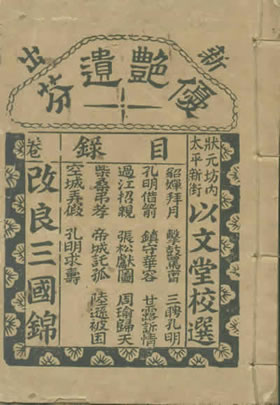 新出
優艷遺芬
目錄
狀元坊內
太平新街
以文堂校選
貂嬋拜月 擊鼓罵曹 三聘孔明
孔明借箭 鎮守華容 甘露訴情
過江招親 張松獻圖 周瑜歸天
柴桑弔孝 帝城託孤 陸遜被困
空城弄假 孔明求壽
卷
改良三國錦